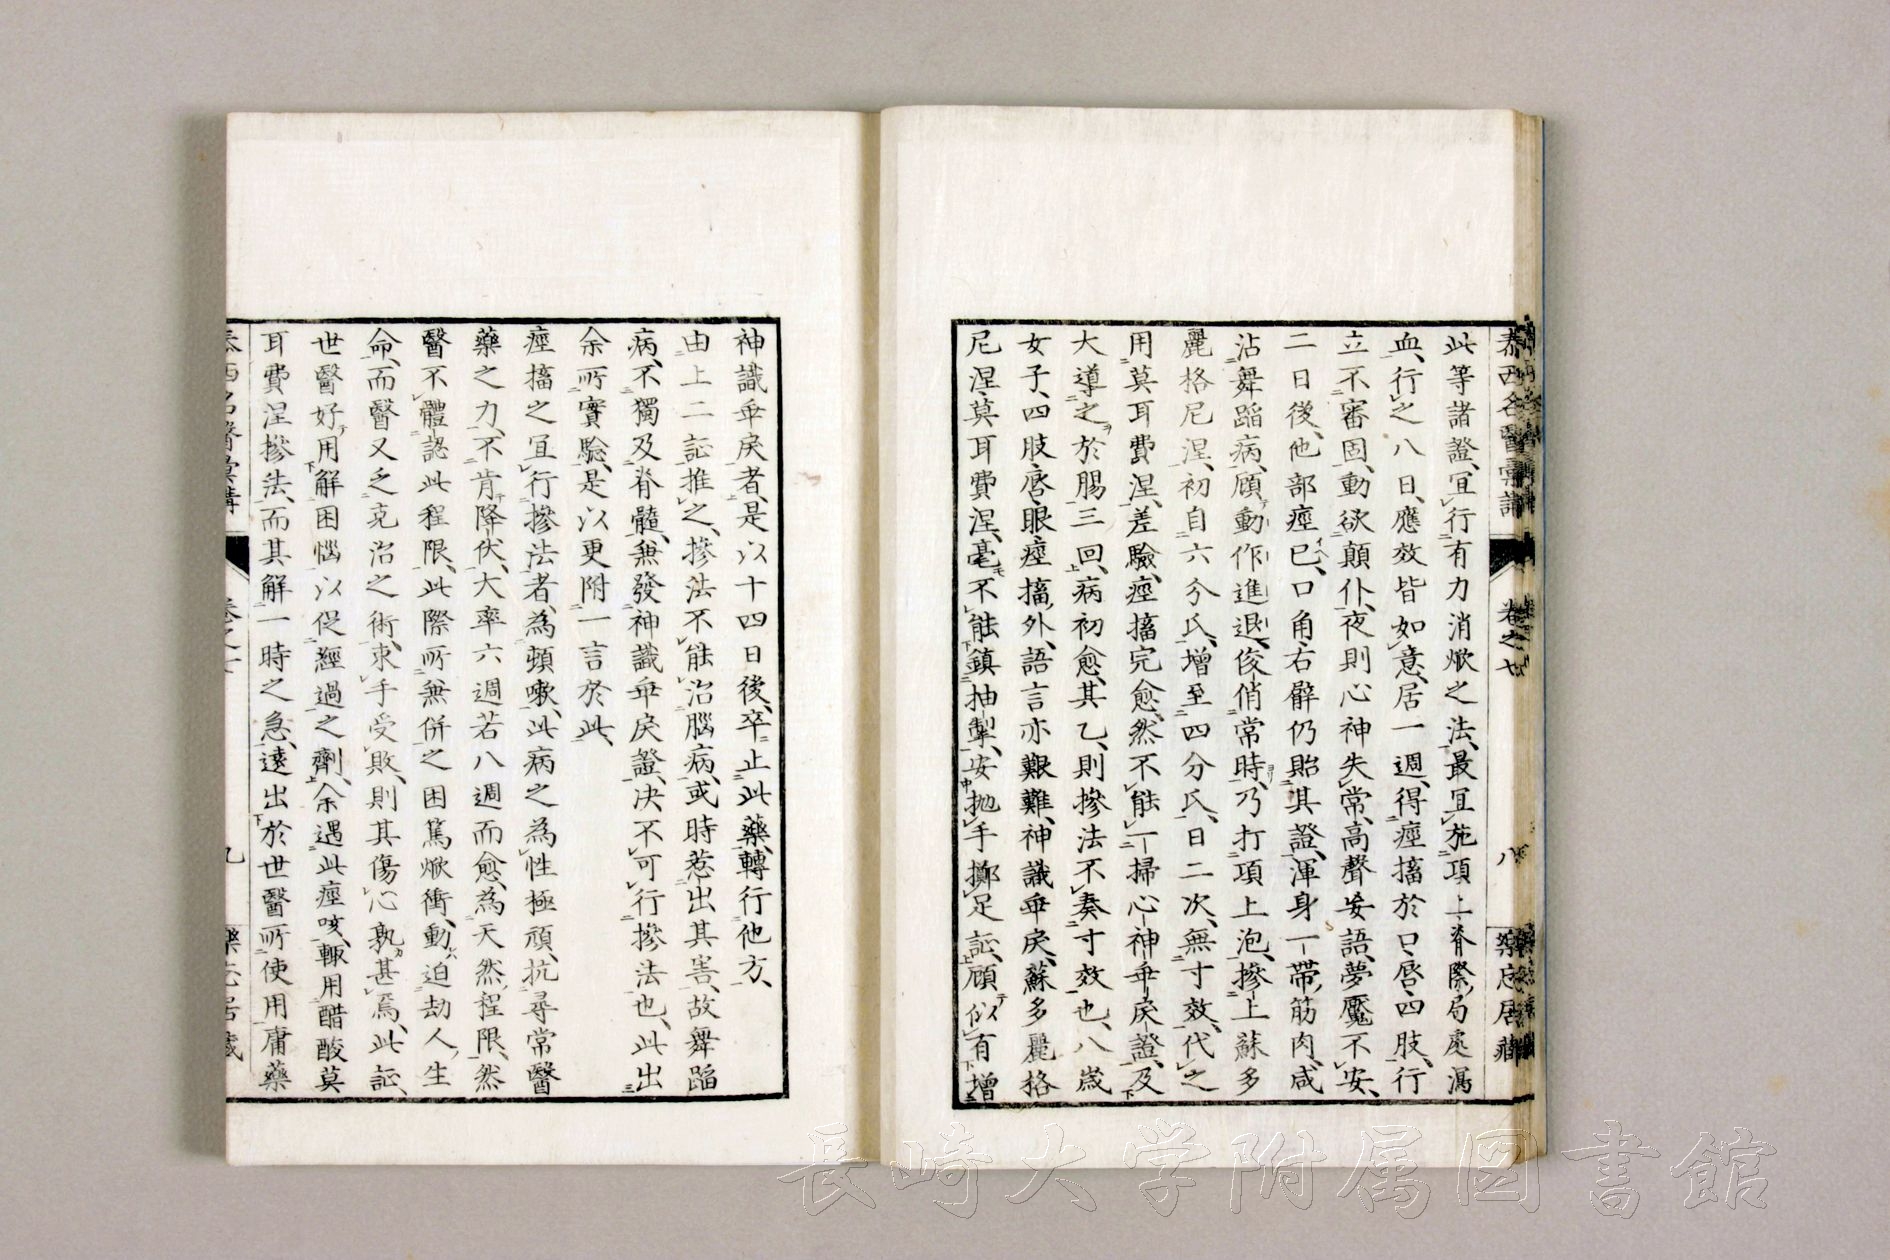 泰西名醫彙講 卷之七 八 樂忘居藏
此等諸證、宜行有力消焮之法、最宜施項上脊際、局處瀉
血、行之八日、應效皆如意、居一週、得痙搐於口唇四肢、行
立不審固、動欲顛仆、夜則心神失常、高聲妄語、夢魘不安、
二日後、他部痙已、口角右臂仍貽其證、渾身一帶、筋肉咸
沾舞蹈病、頋動作進退、俊俏常時、乃打項上泡、摻上蘇多
麗格尼涅、初自六分氏、增至四分氏、日二次、無寸效、代之
用莫耳費涅、差驗、痙搐完愈、然不能一掃心神乖戾證、及
大導之於腸三回、病初愈、其乙、則摻法不奏寸效也、八歲
女子、四肢唇眼痙搐外、語言亦艱難、神識乖戾、蘇多麗格
尼涅、莫耳費涅、毫不能鎮抽掣、妄抛手擲足証、頋似有增
神識乖戾者、是以十四日後、卒止此藥、轉行他方、
由上二証推之、摻法不能治腦病、或時惹出其害、故舞蹈
病、不獨及脊髓、兼發神識乖戾證、决不可行摻法也、此出
余所實驗、是以更附一言於此、
痙搐之宜行摻法者、為頓嗽、此病之為性極頑、抗尋常醫
藥之力、不肯降伏、大率六週若八週而愈、為天然程限、然
醫不體認此程限、此際所兼併之困篤焮衝、動迫劫人生
命、而醫又乏克治之術、束手受敗、則其傷心孰甚焉、此証、
世醫好用解困惱以促經過之劑、余遇此痙咳、輙用醋酸莫
耳費涅摻法、而其解一時之急、遠出於世醫所使用庸藥
泰西名醫彙講 卷之七 九 樂忘居藏
長崎大学附属図書館